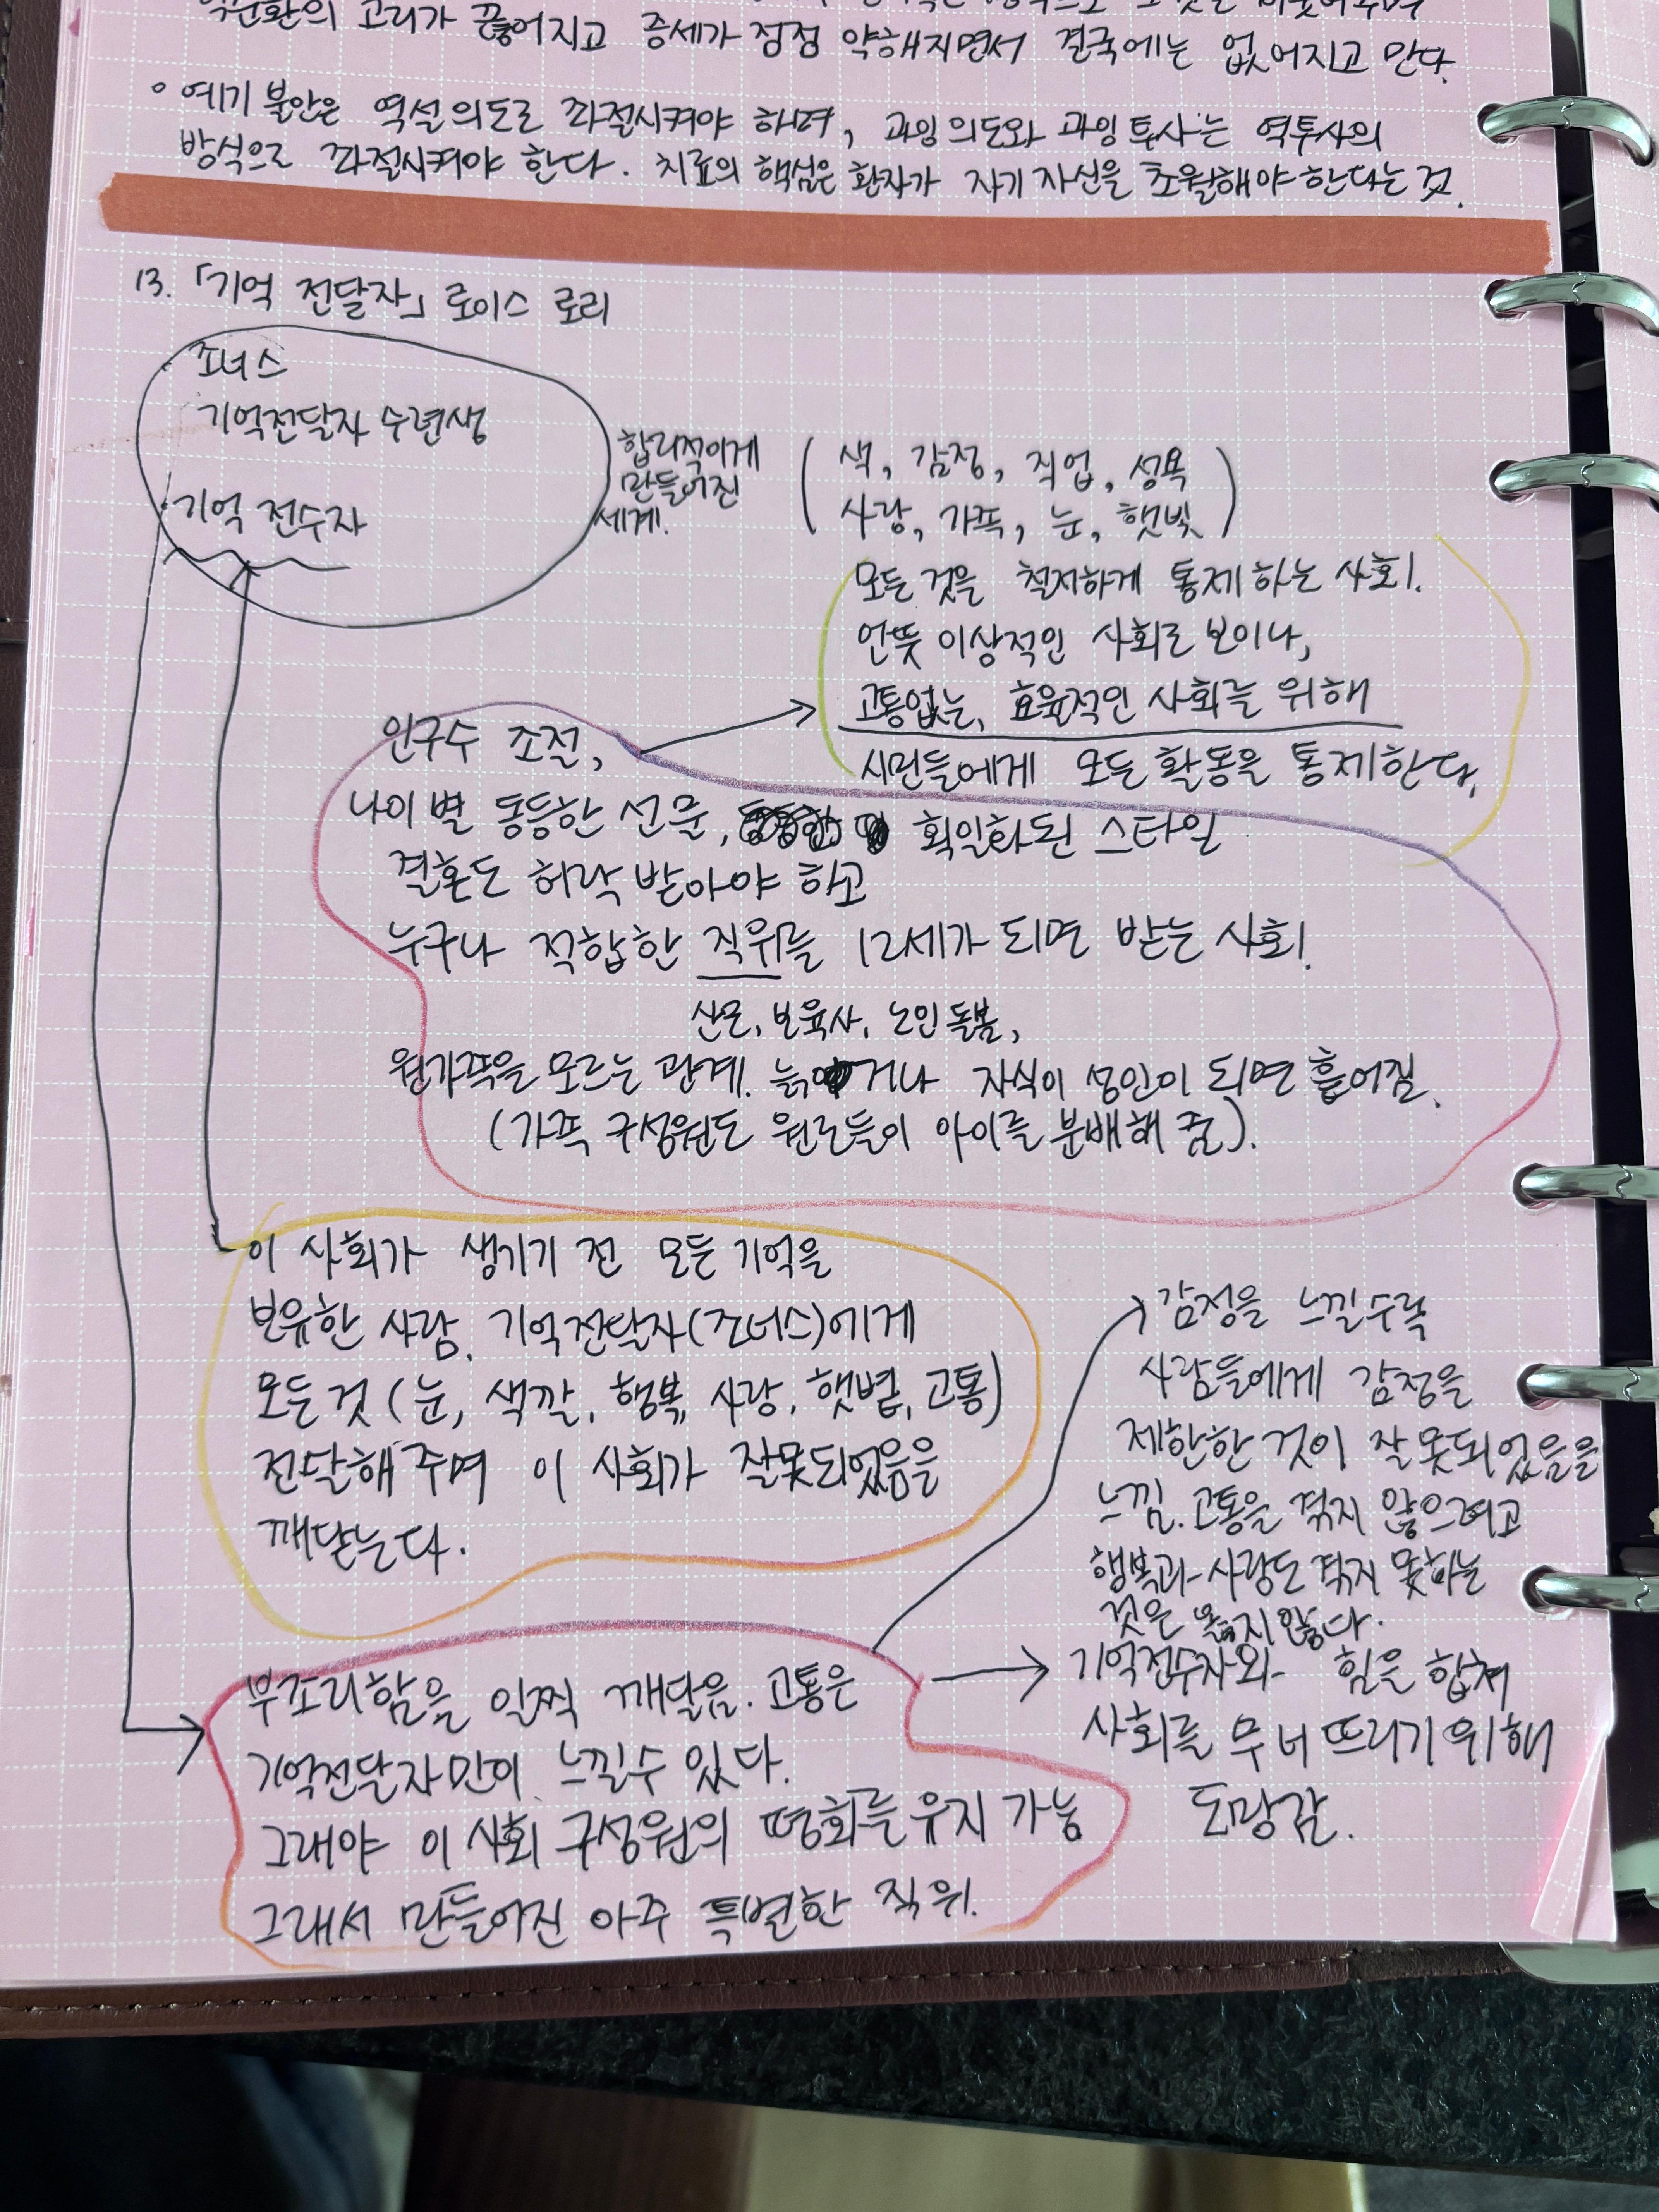 고리가 끊어지고 증세가 점점 약해지면서 결국에는 없어지고 만다.
◦ 예기 불안은 역설의도로 좌절시켜야 하며, 과잉의도와 과잉투사는 역투사의
방식으로 좌절시켜야 한다. 치료의 핵심은 환자가 자기 자신을 초월해야 한다는 것.
13. 「기억 전달자」 로이스 로리
조너스
기억전달자 수련생
기억 전수자
합리적이게
만들어진
세계.
(색, 감정, 직업, 성욕
사랑, 가족, 눈, 햇빛)
모든 것을 철저하게 통제하는 사회.
언뜻 이상적인 사회로 보이나,
고통없는, 효율적인 사회를 위해
시민들에게 모든 활동을 통제한다.
인구수 조절,
나이별 동등한 선물, 획일화된 스타일
결혼도 허락 받아야 하고
누구나 적합한 직위를 12세가 되면 받는 사회.
산모, 보육사, 노인돌봄,
원가족을 모르는 관계. 늙거나 자식이 성인이 되면 흩어짐.
(가족 구성원도 원로들이 아이를 분배해 줌).
이 사회가 생기기 전 모든 기억을
보유한 사람. 기억전달자(조너스)에게
모든 것(눈, 색깔, 행복, 사랑, 햇볕, 고통)
전달해 주며 이 사회가 잘못되었음을
깨닫는다.
감정을 느낄수록
사람들에게 감정을
제한한 것이 잘못되었음을
느낌. 고통을 겪지 않으려고
행복과 사랑도 겪지 못하는
것은 옳지 않다.
기억전수자와 힘을 합쳐
사회를 무너뜨리기 위해
도망감.
부조리함을 일찍 깨달음. 고통은
기억전달자만이 느낄수 있다.
그래야 이 사회 구성원의 평화를 유지 가능
그래서 만들어진 아주 특별한 직위.